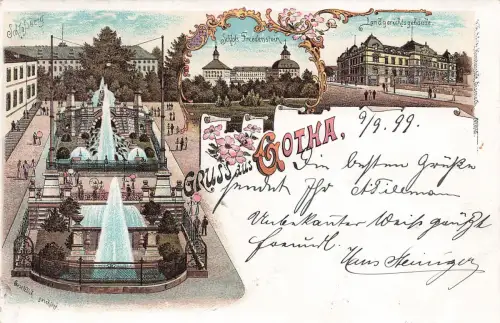 Schloßberg
Schloß Friedenstein.
Landgerichtsgebäude.
Gruss aus Gotha,
9/9. 99.
Die besten Grüße
sendet Ihr
Unbekannter Weise grüßt
freundl.
Hans